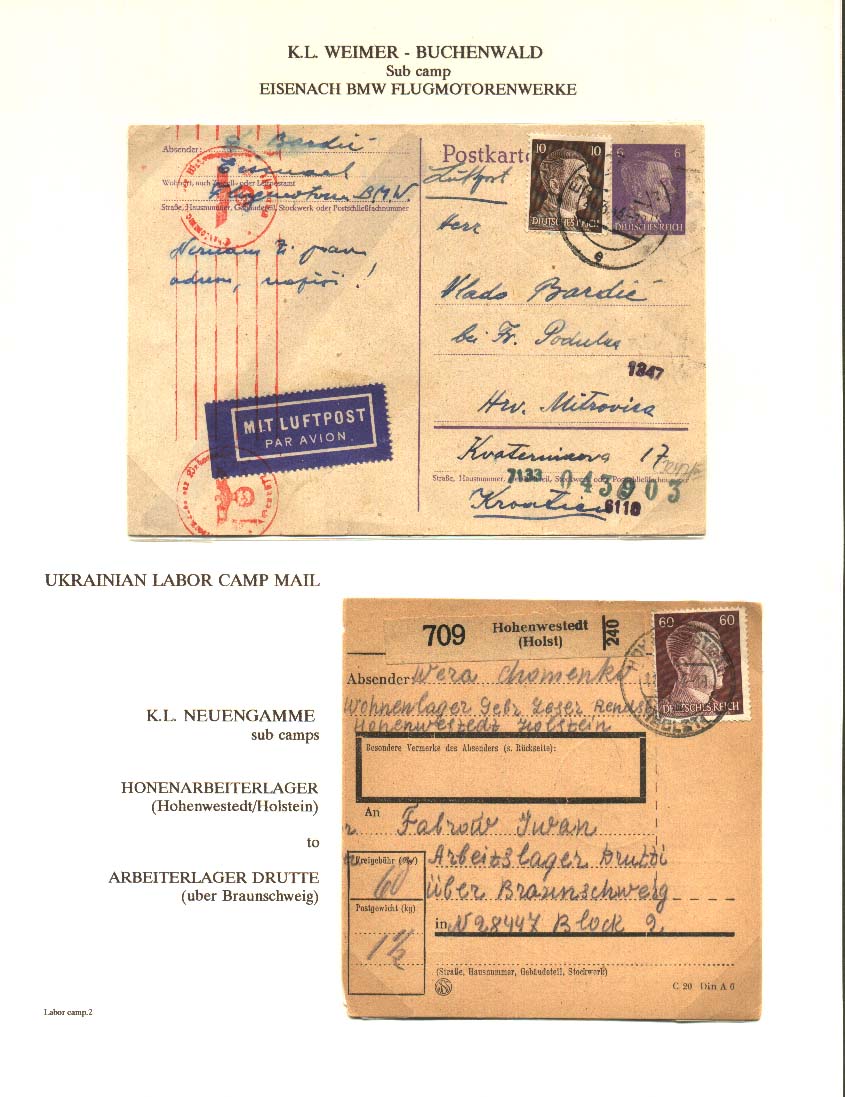 K.L. WEIMER - BUCHENWALD
Sub camp
EISENACH BMW FLUGMOTORENWERKE
Absender: Bardić
Wohnort, auch Zustell- oder Leitpostamt
Flugmotoren BMW
Straße, Hausnummer, Gebäudeteil, Stockwerk oder Postschließfachnummer
adresu, napiši!
Postkarte
10 10
DEUTSCHES REICH
6 6
DEUTSCHES REICH
Luftpost
Herr
Vlado Bardić
bei Fr. Podulas
1347
Hrv. Mitrovica
MIT LUFTPOST
PAR AVION
Kvaternikova 17
Straße, Hausnummer, Gebäudeteil, Stockwerk oder Postschließfachnummer
7133 043903
Kroatien 6118
UKRAINIAN LABOR CAMP MAIL
709 Hohenwestedt
(Holst)
240
60 60
DEUTSCHES REICH
Absender: Wera Chomenko
Wohnenlager Gebr Loser Rendsb
Hohenwestedt Holstein
Besondere Vermerke des Absenders (s. Rückseite):
K.L. NEUENGAMME
sub camps
HONENARBEITERLAGER
(Hohenwestedt/Holstein)
to
ARBEITERLAGER DRUTTE
(uber Braunschweig)
An
Fabrow Iwan
Freigebühr
60
Arbeitslager Drutti
über Braunschweig
Postgewicht (kg)
1½
in N 28447 Block 2
(Straße, Hausnummer, Gebäudeteil, Stockwerk)
C 20 Din A 6
Labor camp.2